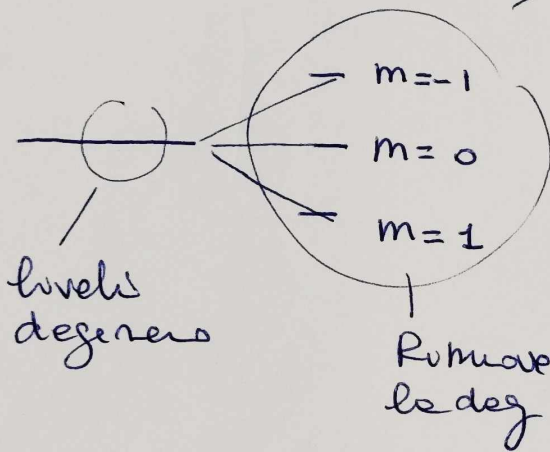 m=-1
m=0
m=1
livello
degenere
Rimuove
la deg